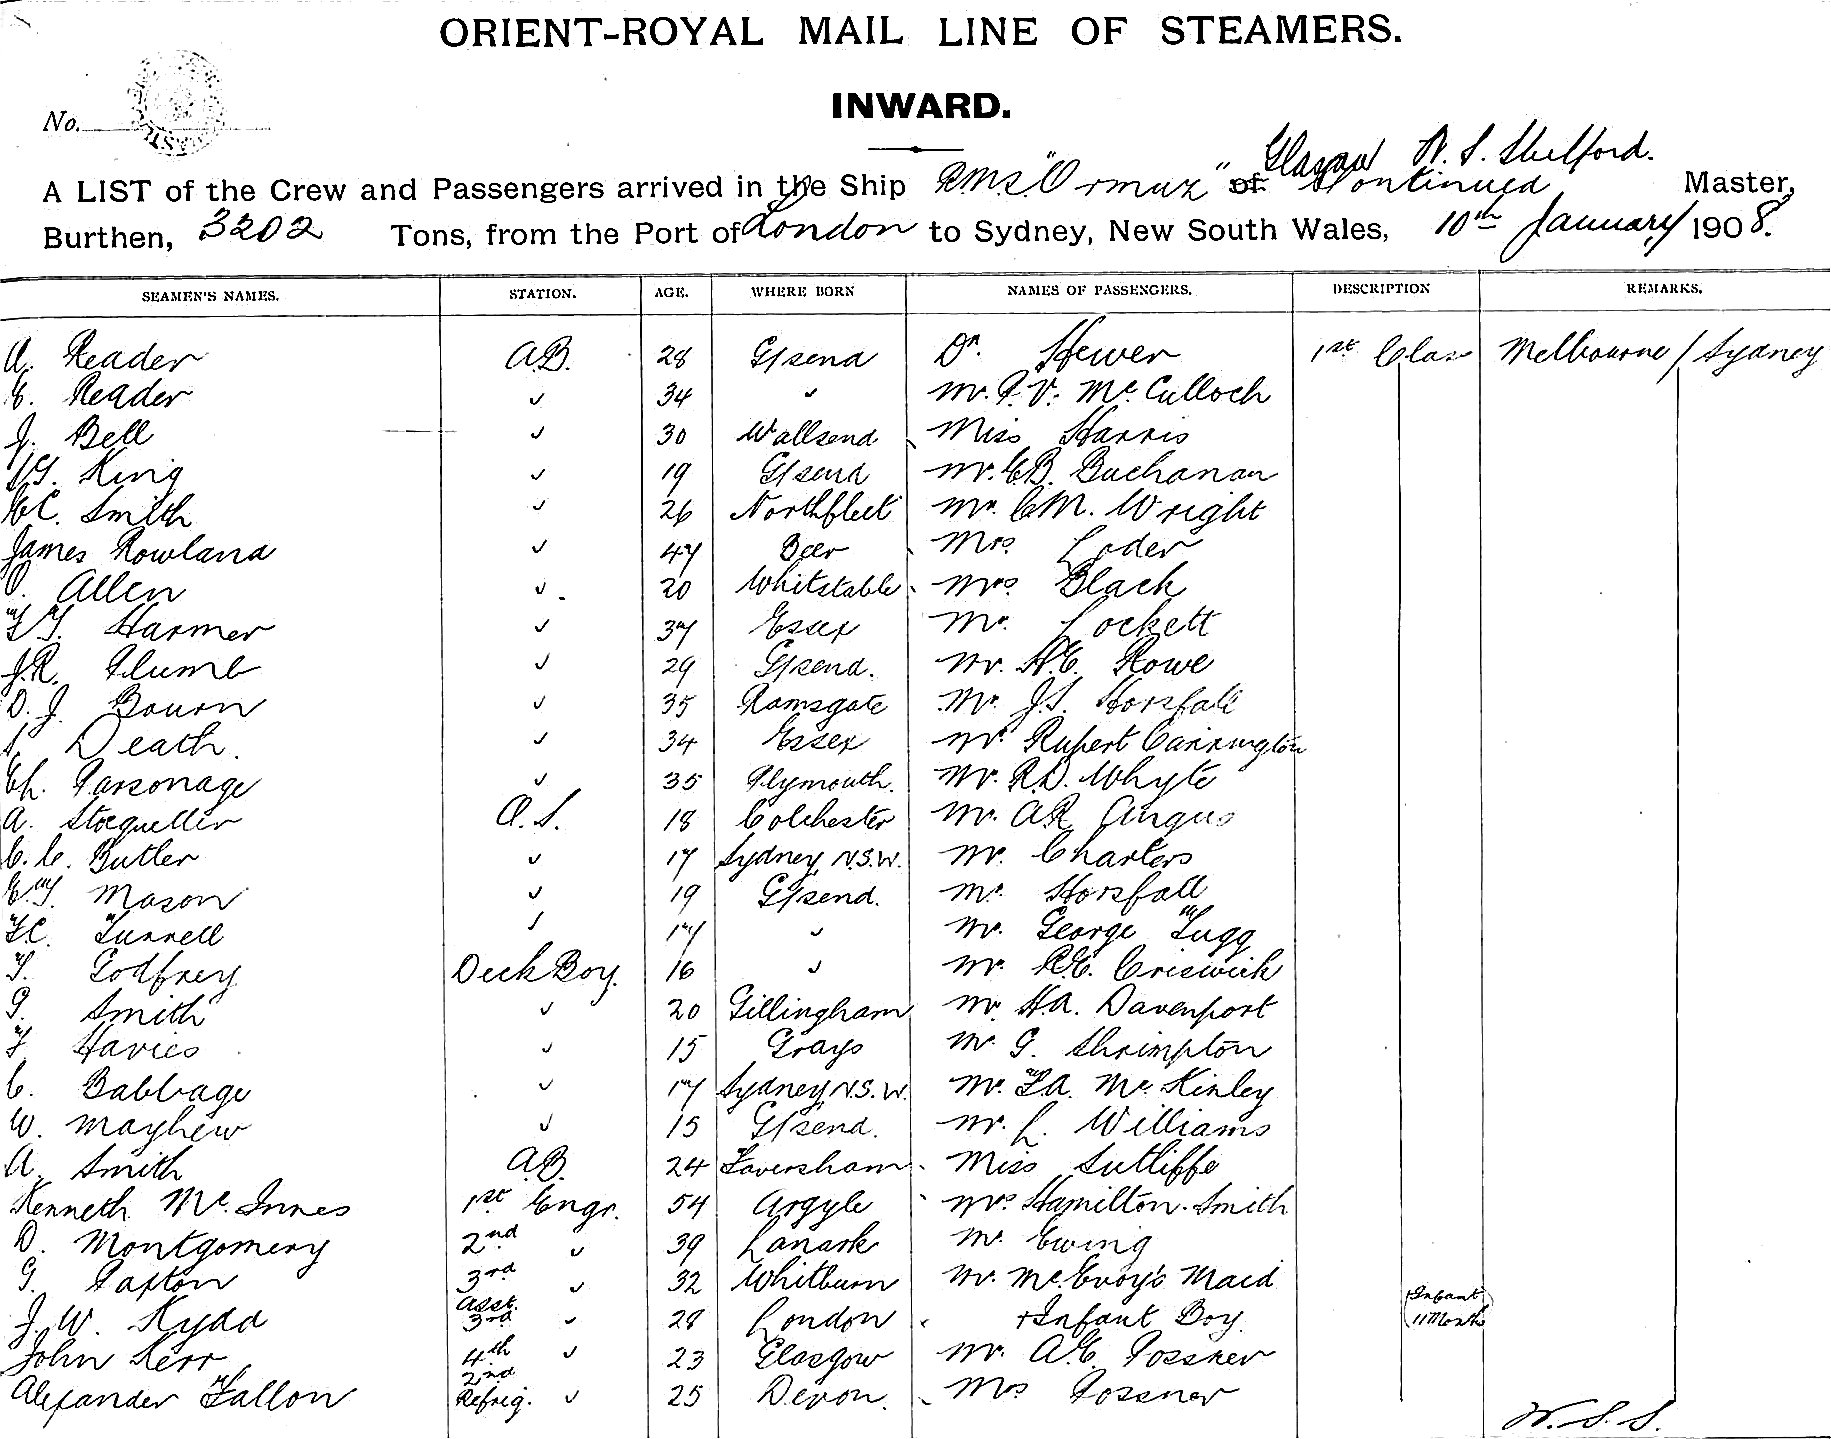 ORIENT-ROYAL MAIL LINE OF STEAMERS.
No.
INWARD.
Glasgow W. S. Shelford.
A LIST of the Crew and Passengers arrived in the Ship RMS "Ormuz" of Continued Master,
Burthen, 3202 Tons, from the Port of London to Sydney, New South Wales, 10th January 1908.
SEAMEN'S NAMES. STATION. AGE. WHERE BORN NAMES OF PASSENGERS. DESCRIPTION REMARKS.
A. Reader A.B. 28 G/send Dr. Hewer 1st Class Melbourne / Sydney
C. Reader " 34 " Mr. P. V. McCulloch
J. Bell " 30 Wallsend Miss Harris
King " 19 G/send Mr. C.B. Buchanan
Smith " 26 Northfleet Mr. C.M. Wright
James Rowland " 47 Beer Mrs Loder
Allen " 20 Whitstable Mrs. Black
T.G. Harmer " 37 Essex Mr. Lockett
J.R. Plumb " 29 G/send. Mr. H.C. Rowe
D. J. Bourn " 35 Ramsgate Mr. J.S. Horsfall
Death. " 34 Essex Mr Rupert Carrington
Ch. Parsonage " 35 Plymouth. Mr. R.D. Whyte
A. Stocqueller O.S. 18 Colchester Mr. A.R. Angus
C. C. Butler " 17 Sydney, N.S.W. Mr. Charters
E.T. Mason " 19 G/send. Mr. Horsfall
F.C. Turrell " 17 " Mr. George Tugg
T. Godfrey Deck Boy. 16 " Mr. R.E. Criswick
G. Smith " 20 Gillingham Mr. H.A. Davenport
F Havies " 15 Grays Mr G. Shrimpton
C. Babbage " 17 Sydney, N.S.W. Mr. F.A. McKinley
W. Mayhew " 15 G/send. Mr. L. Williams
A. Smith A.B. 24 Faversham Miss Sutliffe
Kenneth McInnes 1st Engr. 54 Argyle Mrs Hamilton-Smith
D. Montgomery 2nd " 39 Lanark Mr. Ewing
G. Paxton 3rd " 32 Whitburn Mr. McEvoy's Maid
J. W. Kydd Asst. 3rd " 28 London + Infant Boy. (Infant 11 Months)
John Kerr 4th " 23 Glasgow Mr. A.E. Possner
Alexander Fallon 2nd Refrig. " 25 Devon. Mrs Possner
W. S. S.